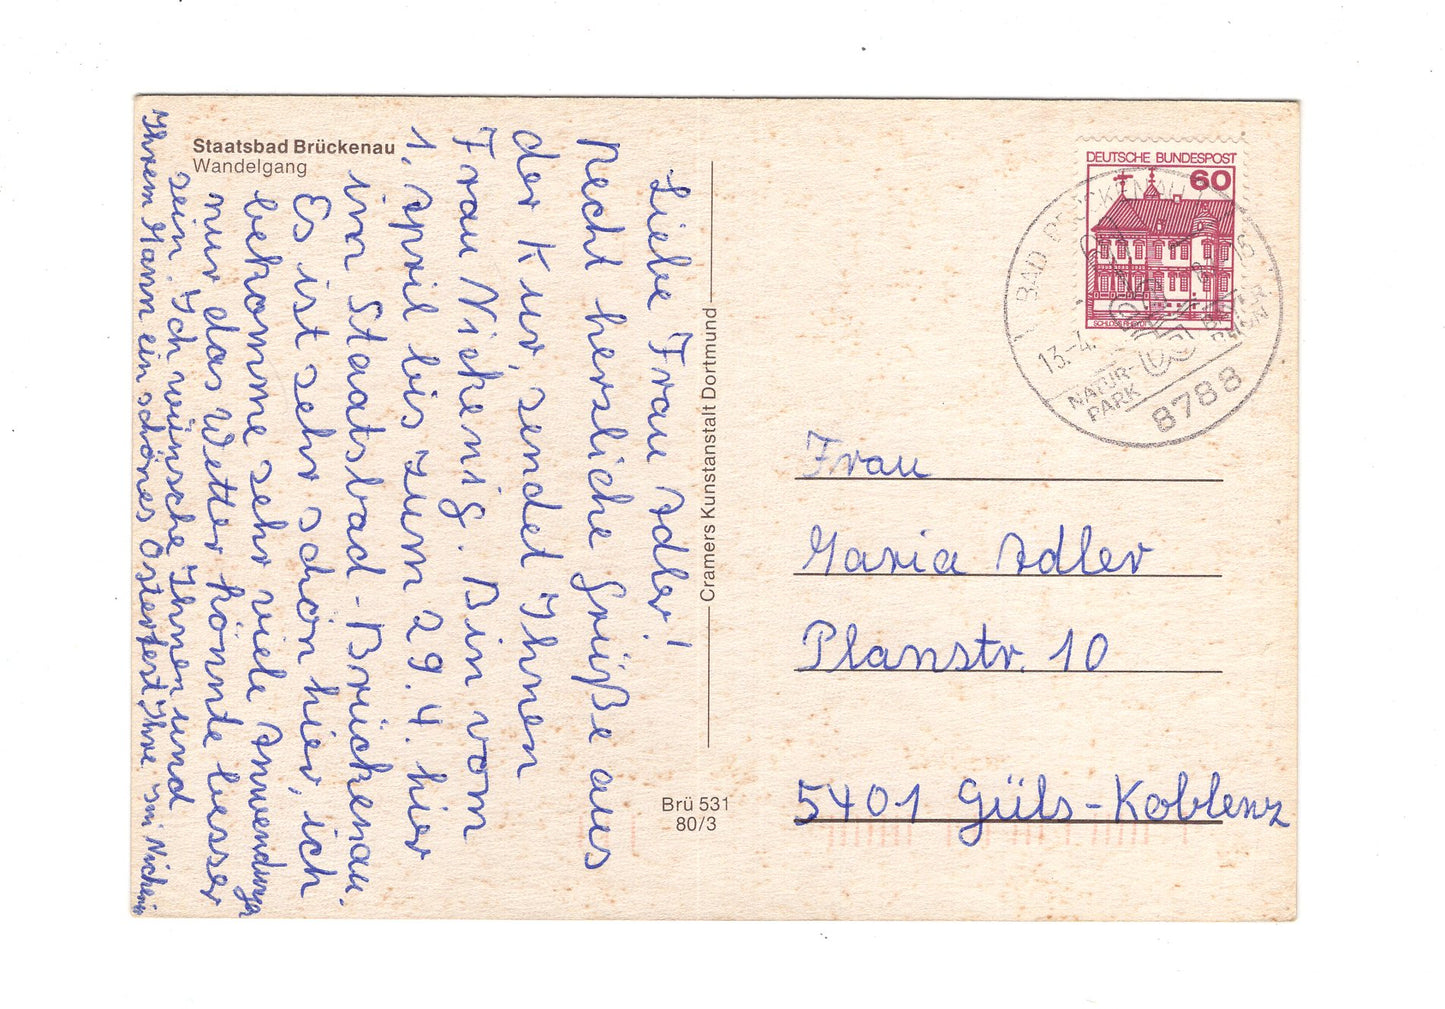 Staatsbad Brückenau
Wandelgang
Liebe Frau Adler!
Recht herzliche Grüße aus
der Kur sendet Ihnen
Frau Nickenig. Bin vom
1. April bis zum 29. 4. hier
im Staatsbad-Brückenau.
Es ist sehr schön hier, ich
bekomme sehr viele Anwendungen
nur das Wetter könnte besser
sein. Ich wünsche Ihnen und
Ihrem Mann ein schönes Osterfest Ihre
Cramers Kunstanstalt Dortmund
Brü 531
80/3
DEUTSCHE BUNDESPOST
60
BAD BRÜCKENAU
13.-4.
NATUR-
PARK
BAYER
RHÖN
8788
Frau
Maria Adler
Planstr. 10
5401 Güls-Koblenz